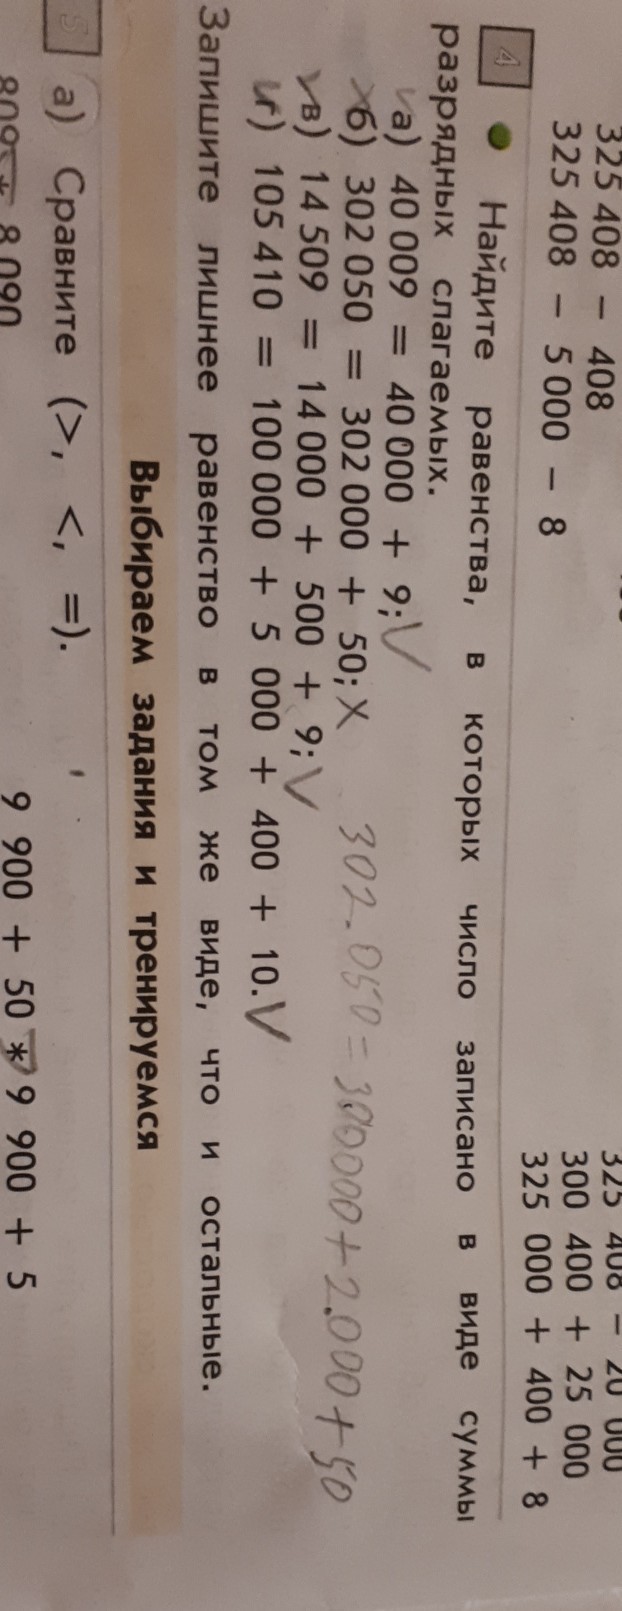 325 408 – 408
325 408 – 5 000 – 8
325 408 – 20 000
300 400 + 25 000
325 000 + 400 + 8
4 Найдите равенства, в которых число записано в виде суммы
разрядных слагаемых.
V а) 40 009 = 40 000 + 9; V
X б) 302 050 = 302 000 + 50; X 302.050 = 300000 + 2.000 + 50
V в) 14 509 = 14 000 + 500 + 9; V
г) 105 410 = 100 000 + 5 000 + 400 + 10. V
Запишите лишнее равенство в том же виде, что и остальные.
Выбираем задания и тренируемся
5 а) Сравните (>, <, =).
809 * 8 090
9 900 + 50 * 9 900 + 5